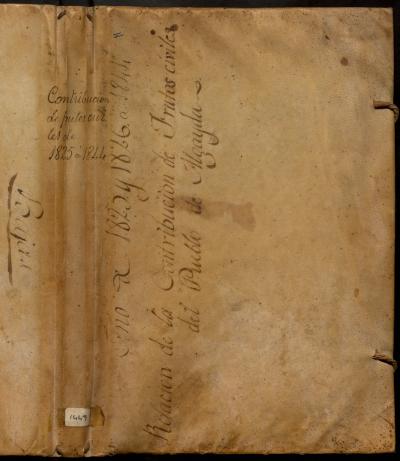 Contribucion
de frutos civi
les de
1825 á 1844
Relacion de la Contribucion de Frutos civiles
del Pueblo de Algayda
Año de 1825 y 1826 á 1844
1449